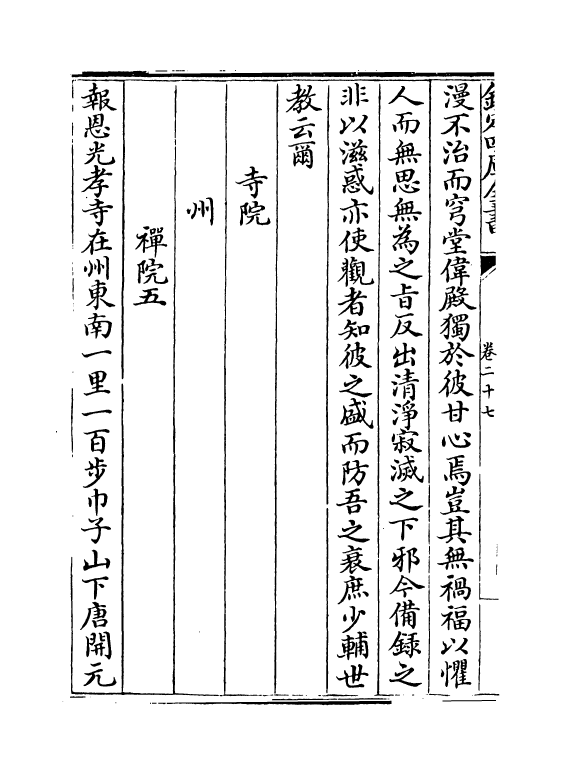 欽定四庫全書
卷二十七
漫不治而穹堂偉殿獨於彼甘心焉豈其無禍福以懼
人而無思無為之旨反出清淨寂滅之下邪今備録之
非以滋惑亦使觀者知彼之盛而防吾之衰庶少輔世
教云爾
寺院
州
禪院五
報恩光孝寺在州東南一里一百步巾子山下唐開元